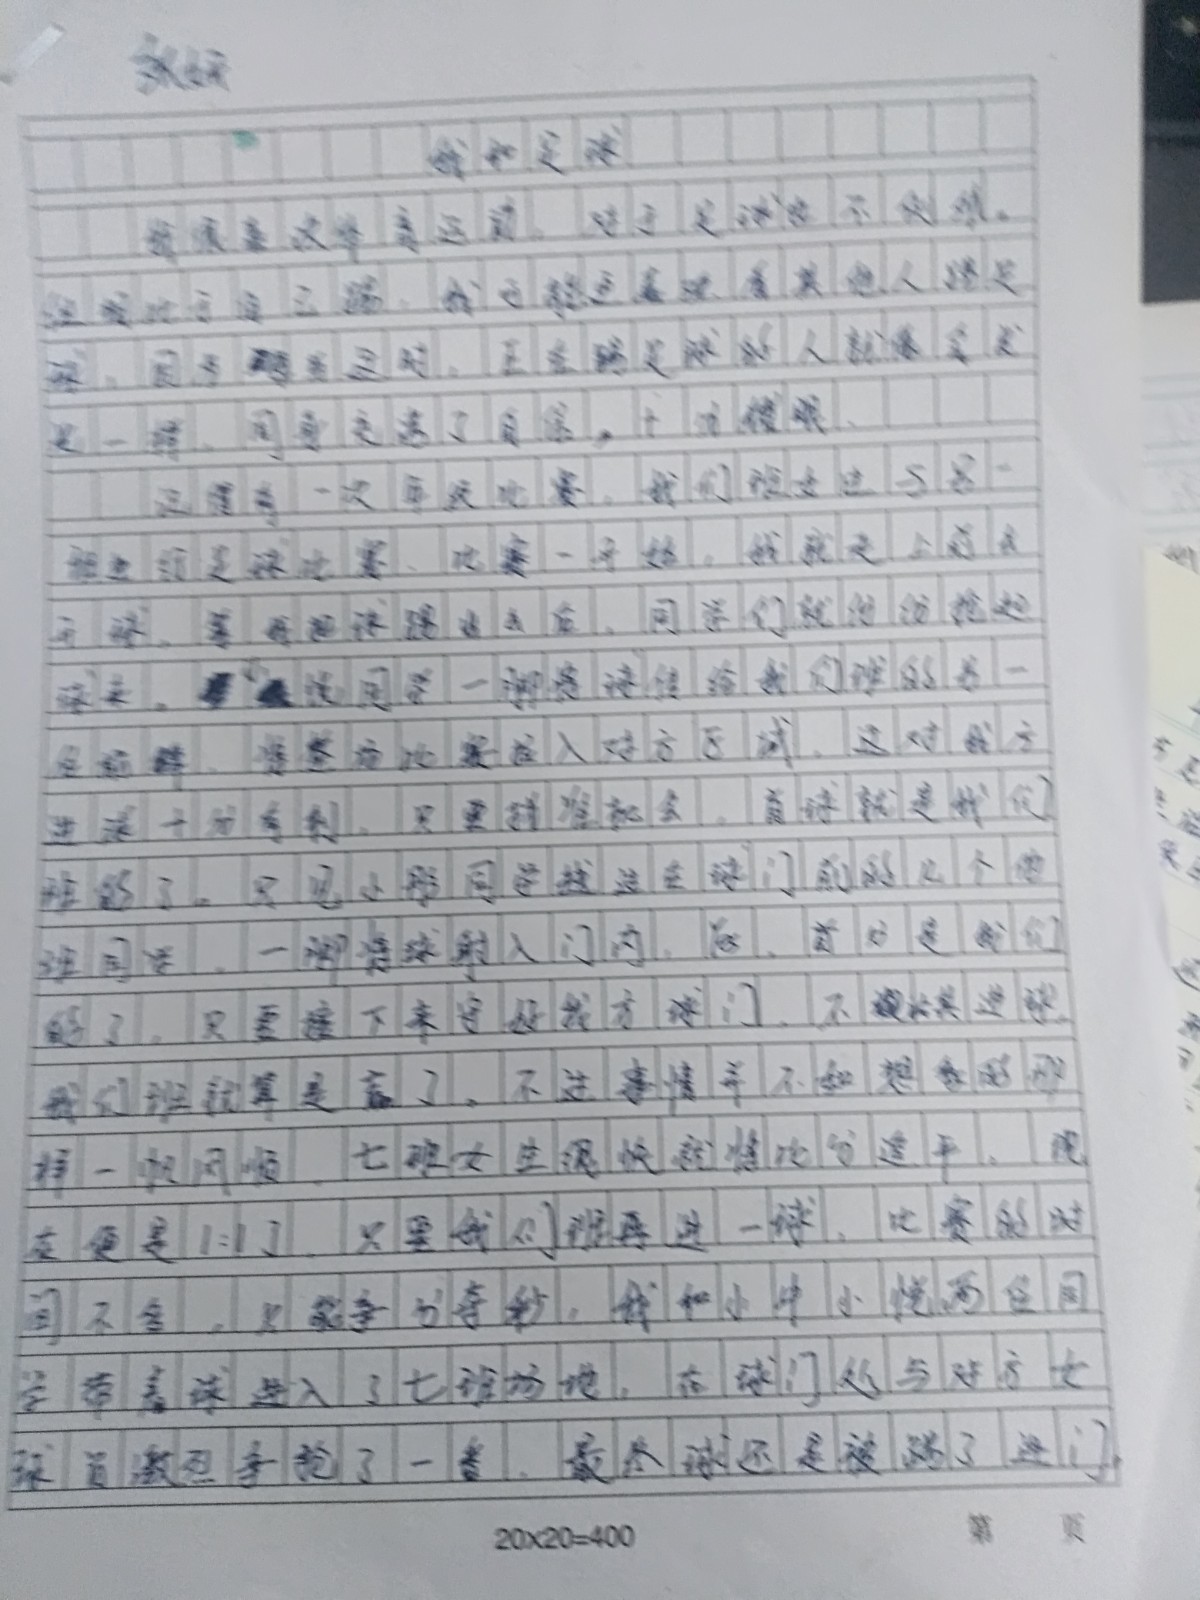 我和足球
我很喜欢体育运动,对于足球也不例外。
但相比于自己踢,我更喜欢看其他人踢足
球,因为 ,正在踢足球的人就像会发
光一样,周身充满了自信。十分耀眼,
记得有一次年级比赛,我们班女生与另一
班女生足球比赛,比赛一开始,我就走上前去
开球,等我把球踢出去后,同学们就纷纷抢起
球来。 同学一脚将球传给我们班的另一
位前锋,将整场比赛拉入对方区域,这对我方
进球十分有利,只要找准机会,首球就是我们
班的了。只见小彤同学越过在球门前的几个他
班同学,一脚将球射入门内,好,首分是我们
的了,只要接下来守好我方球门,不 其进球,
我们班就算是赢了。不过事情并不如想象的那
样一帆风顺,七班女生很快就将比分追平,现
在便是1:1了,只要我们班再进一球,比赛的时
间不多,只能争分夺秒,我和小 小悦两位同
学带着球进入了七班场地,在球门处与对方女
球员激烈争抢了一番,最终球还是被踢了进门,
20X20=400
第 页